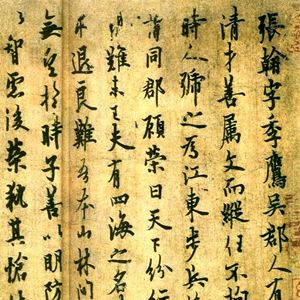 張翰字季鷹吳郡人有
清才善屬文而縱任不拘
時人號之為江東步兵
謂同郡顧榮曰天下紛
難未已夫有四海之名
求退良難吾本山林間
無望於時子善以明防
以智慮後榮執其愴